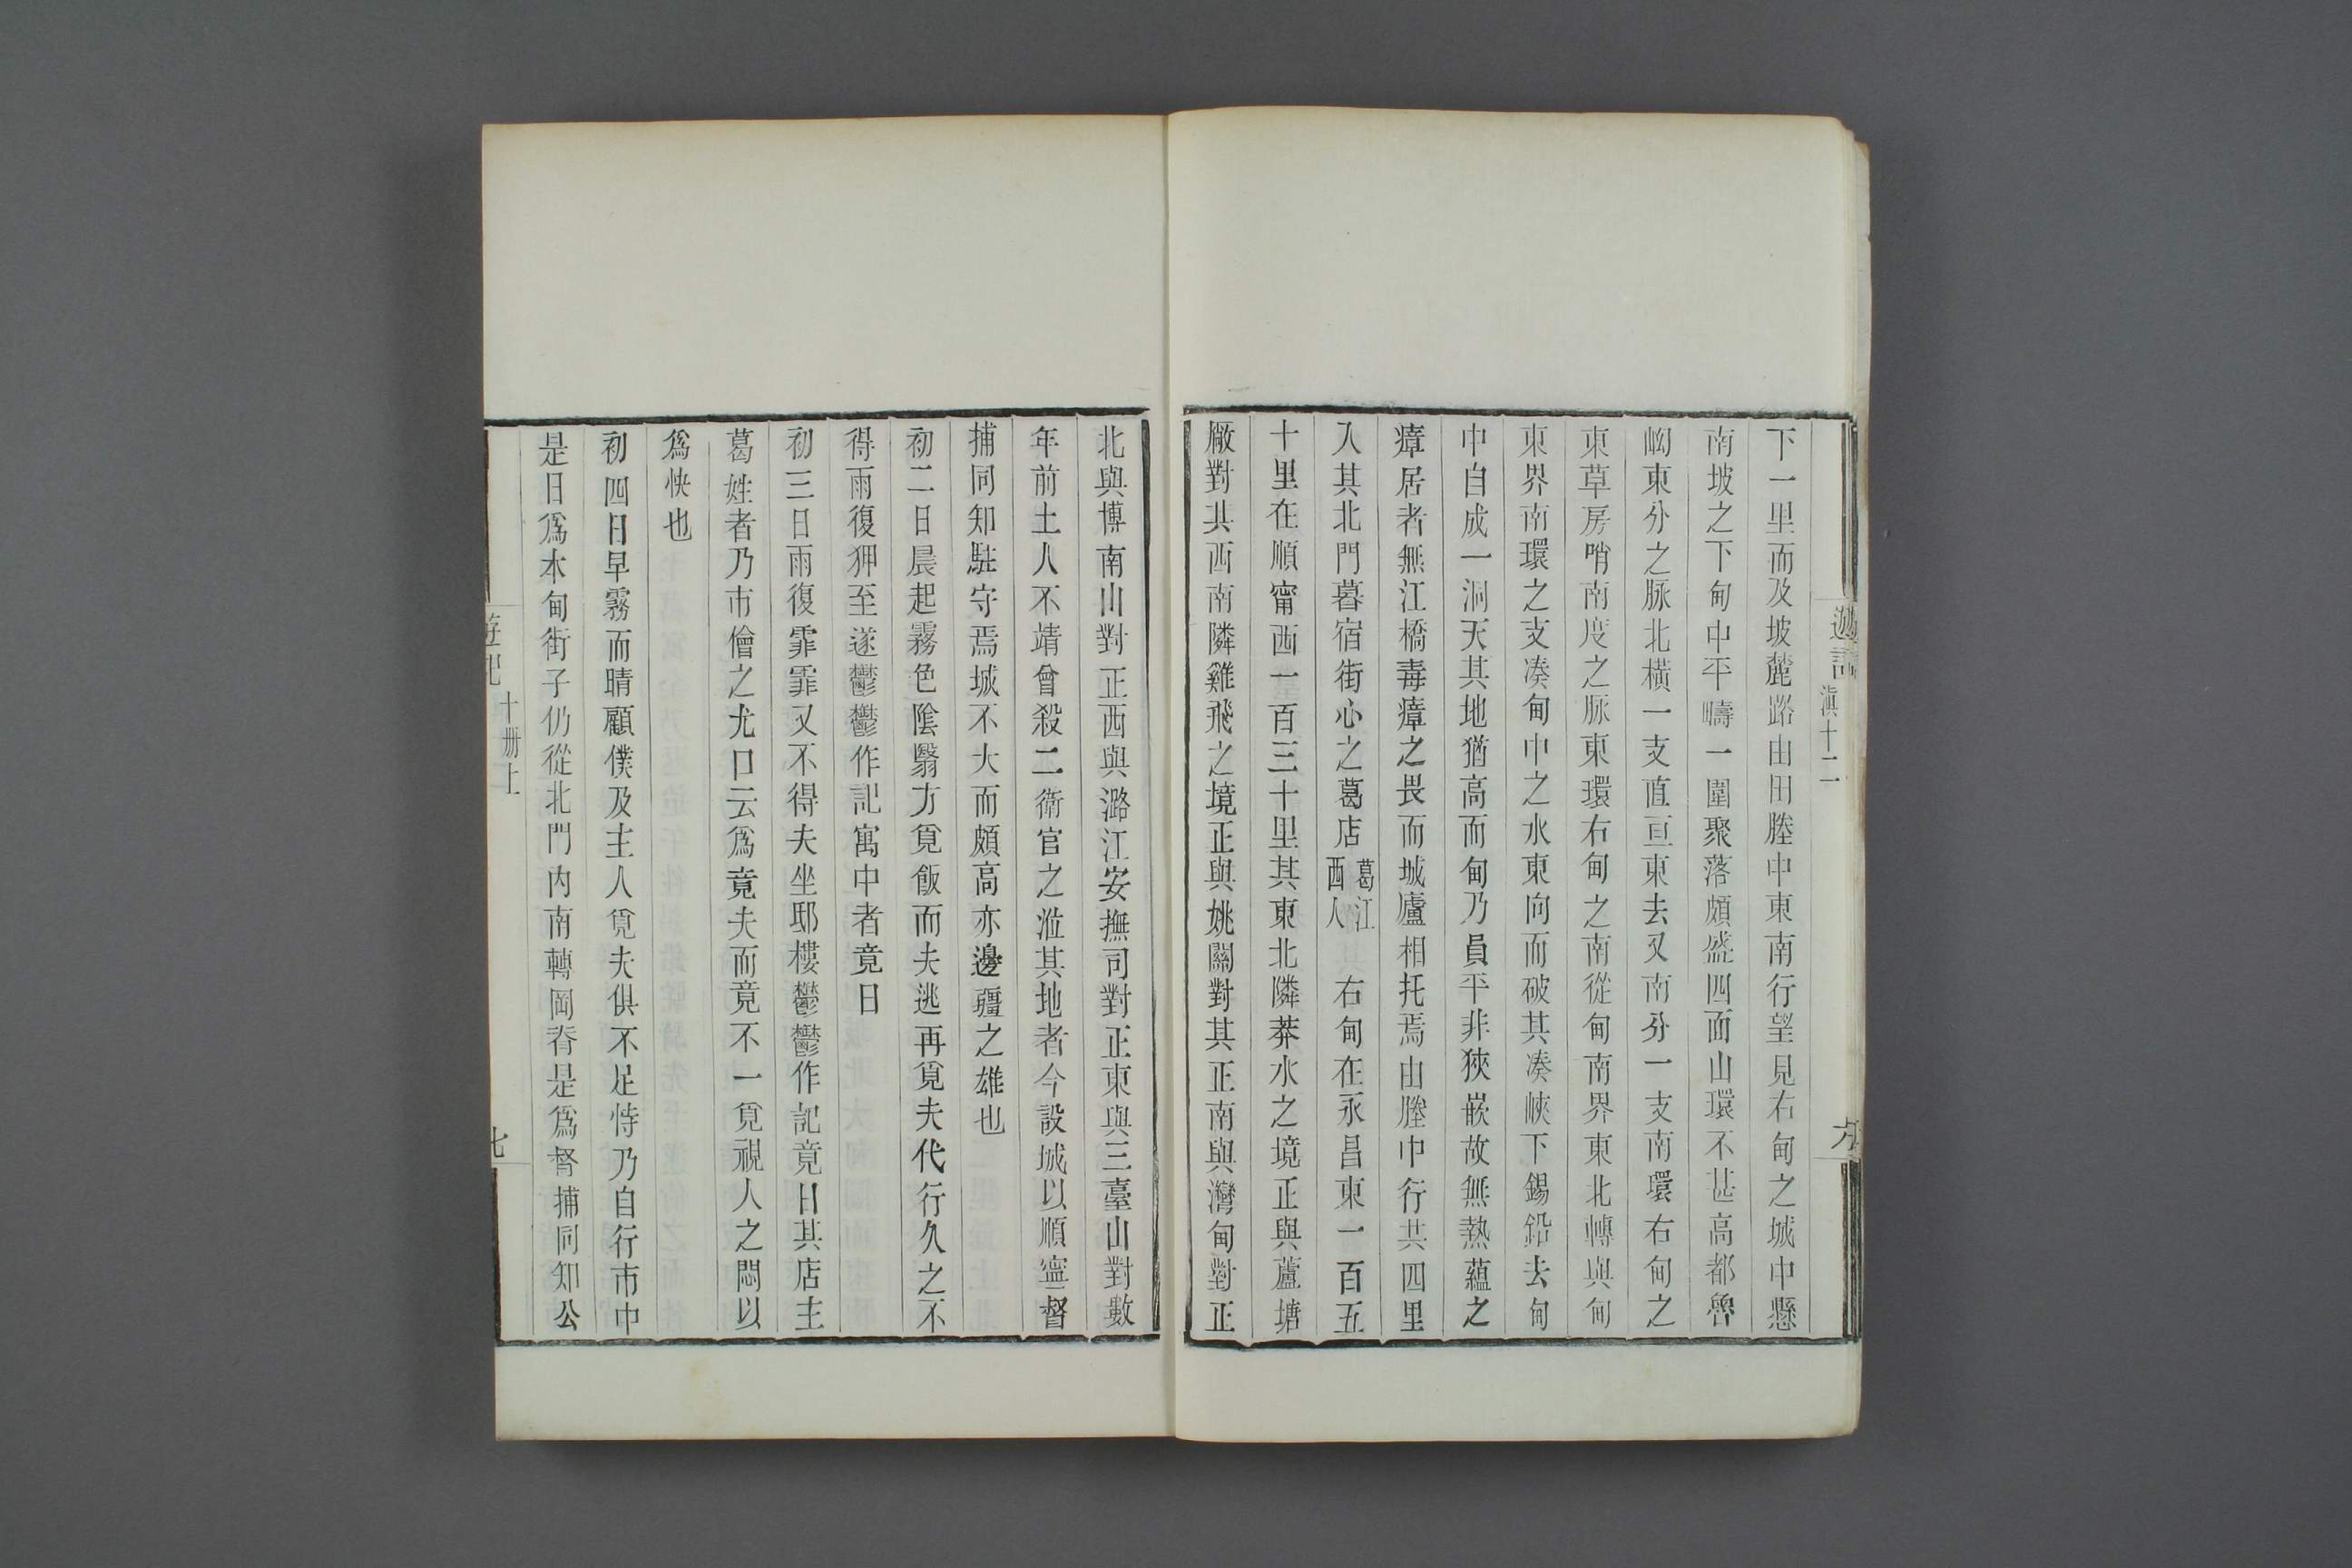 遊記 滇十二
下一里而及坡麓路由田塍中東南行望見右甸之城中懸
南坡之下甸中平疇一圍聚落頗盛四面山環不甚高都魯
㘭東分之脉北橫一支直亘東去又南分一支南環右甸之
東草房哨南度之脈東環右甸之南從甸南界東北轉與甸
東界南環之支凑甸中之水東向而破其凑峽下錫鉛去甸
中自成一洞天其地猶高而甸乃員平非狹嵌故無熱蘊之
瘴居者無江橋毒瘴之畏而城廬相托焉由塍中行共四里
入其北門暮宿街心之葛店葛江西人右甸在永昌東一百五
十里在順甯西一百三十里其東北隣莽水之境正與蘆塘
厰對其西南隣雞飛之境正與姚關對其正南與灣甸對正
北與博南山對正西與潞江安撫司對正東與三臺山對數
年前土人不靖曾殺二衛官之涖其地者今設城以順寧督
捕同知駐守焉城不大而頗高亦邊疆之雄也
初二日晨起霧色陰翳方覓飯而夫逃再覓夫代行久之不
得雨復狎至遂鬱鬱作記寓中者竟日
初三日雨復霏霏又不得夫坐邸樓鬱鬱作記竟日其店主
葛姓者乃市儈之尤口云爲竟夫而竟不一覓視人之悶以
爲快也
初四日早霧而晴顧僕及主人覓夫俱不足恃乃自行市中
是日爲本甸街子仍從北門內南轉岡脊是爲督捕同知公
遊記 十册上
七